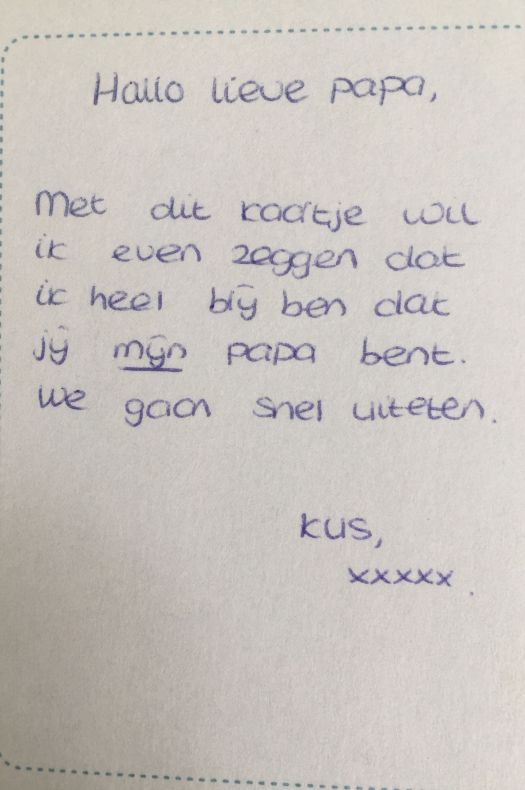 Hallo lieve papa,
Met dit kaartje wil
ik even zeggen dat
ik heel blij ben dat
jij mijn papa bent.
We gaan snel uiteten.
kus,
xxxxx.